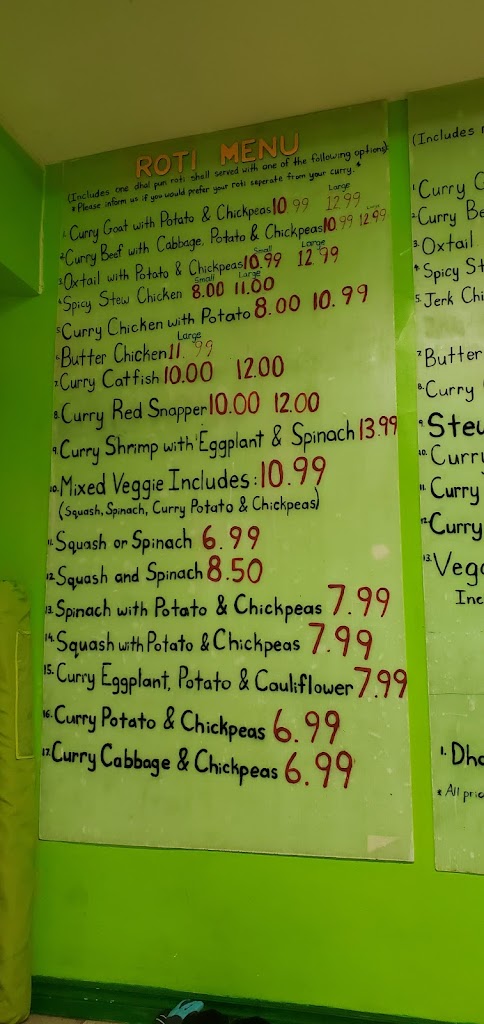 ROTI MENU
(Includes one dhal puri roti shell served with one of the following options)
*Please inform us if you would prefer your roti seperate from your curry.*
Large
1. Curry Goat with Potato & Chickpeas 10.99 12.99
Large
2. Curry Beef with Cabbage, Potato & Chickpeas 10.99 12.99
Small Large
3. Oxtail with Potato & Chickpeas 10.99 12.99
Small Large
4. Spicy Stew Chicken 8.00 11.00
5. Curry Chicken with Potato 8.00 10.99
Large
6. Butter Chicken 11.99
7. Curry Catfish 10.00 12.00
8. Curry Red Snapper 10.00 12.00
9. Curry Shrimp with Eggplant & Spinach 13.99
10. Mixed Veggie Includes: 10.99
(Squash, Spinach, Curry Potato & Chickpeas)
11. Squash or Spinach 6.99
12. Squash and Spinach 8.50
13. Spinach with Potato & Chickpeas 7.99
14. Squash with Potato & Chickpeas 7.99
15. Curry Eggplant, Potato & Cauliflower 7.99
16. Curry Potato & Chickpeas 6.99
17. Curry Cabbage & Chickpeas 6.99
(Includes
1. Curry
2. Curry Be
3. Oxtail
4. Spicy St
5. Jerk Chi
7. Butter
8. Curry
9. Stew
10. Curry
11. Curry
12. Curry
13. Veg
Inc
1. Dha
* All pric